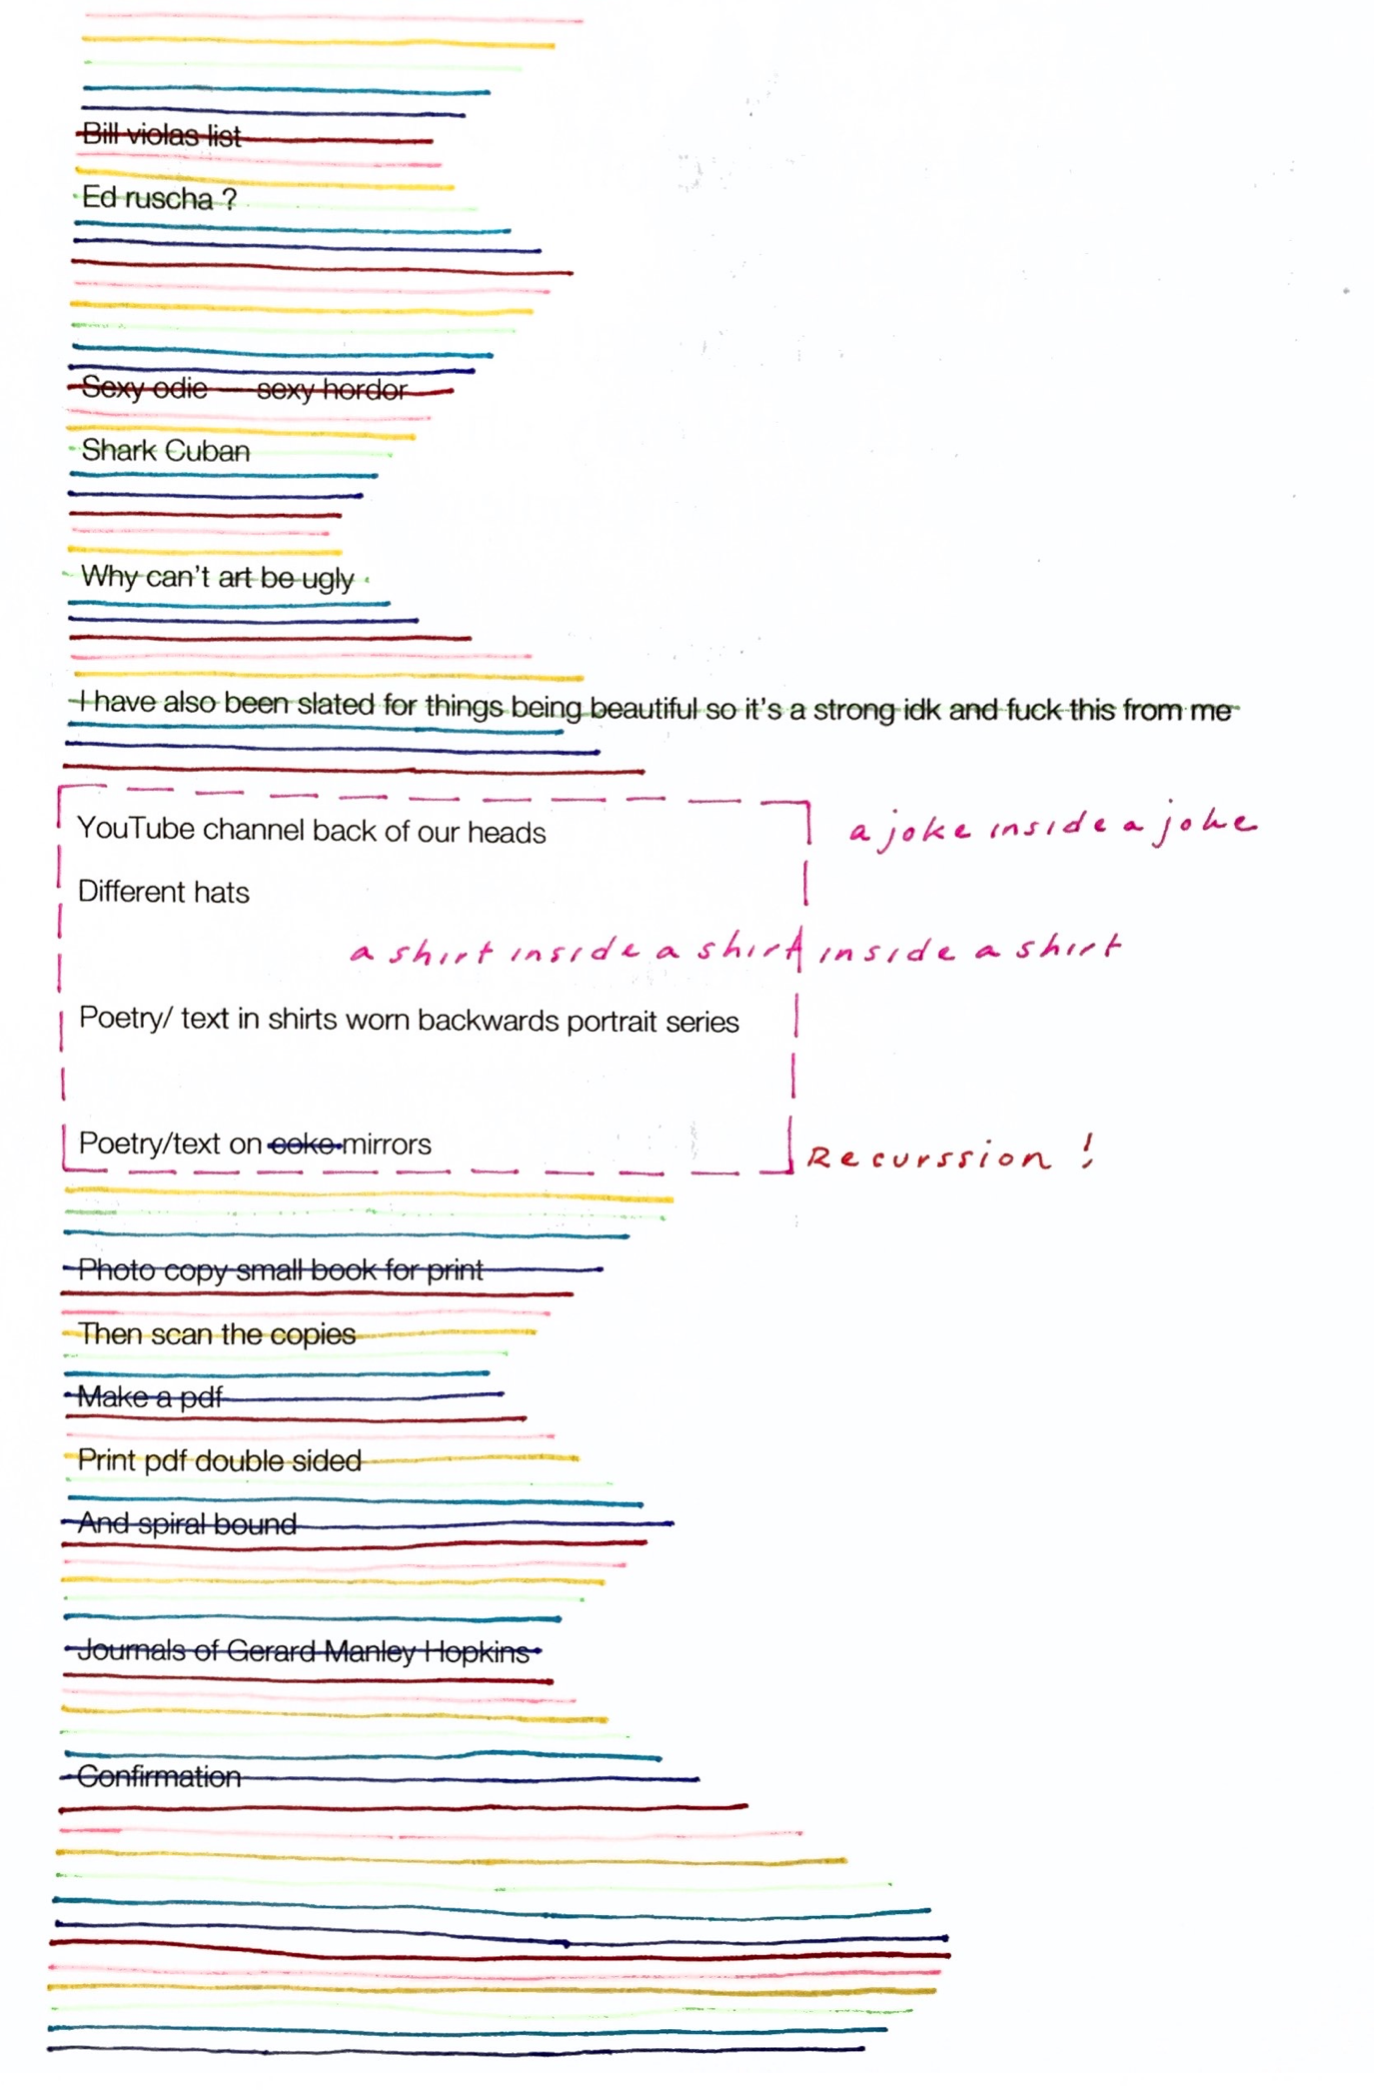 Bill violas list
Ed ruscha ?
Sexy odie — sexy hordor
Shark Cuban
Why can't art be ugly
I have also been slated for things being beautiful so it's a strong idk and fuck this from me
YouTube channel back of our heads
a joke inside a joke
Different hats
a shirt inside a shirt inside a shirt
Poetry/ text in shirts worn backwards portrait series
Poetry/text on coke mirrors
Recurssion !
Photo copy small book for print
Then scan the copies
Make a pdf
Print pdf double sided
And spiral bound
Journals of Gerard Manley Hopkins
Confirmation